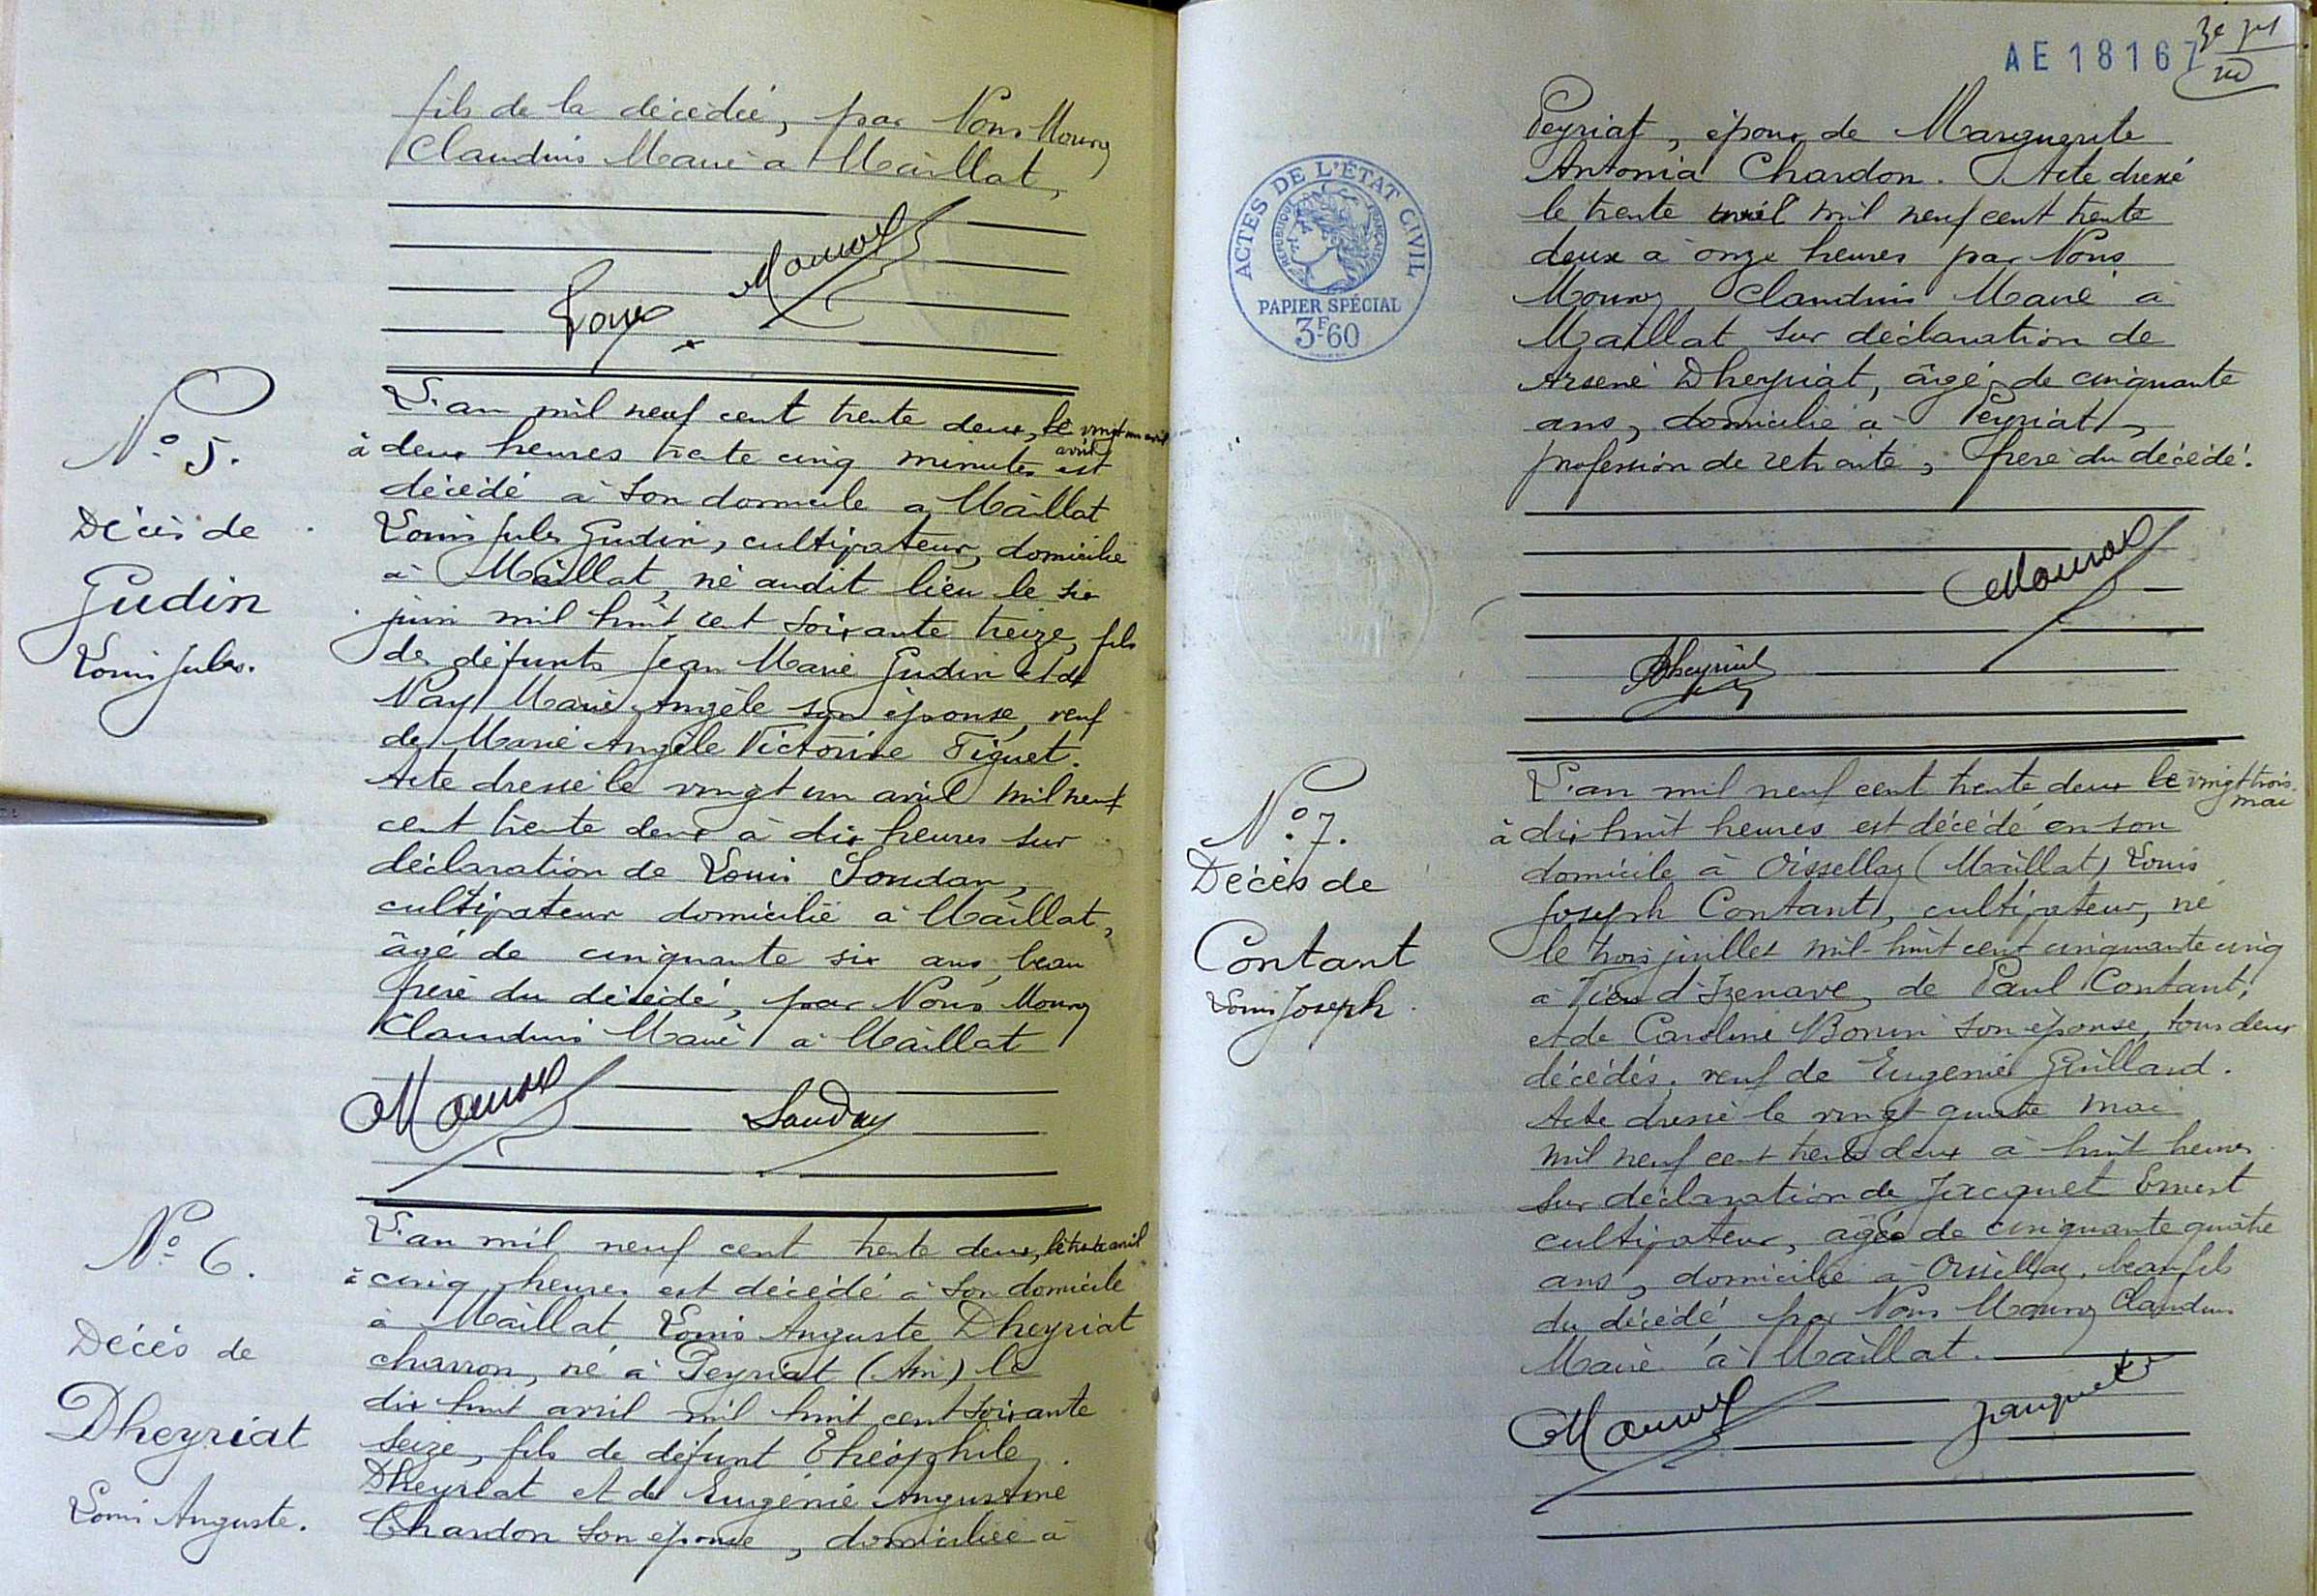 fils de la décédée, par Nous Mouroz
Claudius Maire à Maillat,
N° 5.
Décès de
Gudin
Louis Jules.
L'an mil neuf cent trente deux, le vingt un avril
à deux heures trente cinq minutes est
décédé à son domicile a Maillat
Louis Jules Gudin, cultivateur, domicilié
à Maillat, né audit lieu le six
juin mil huit cent soixante treize, fils
de défunts Jean Marie Gudin et de
Nay Marie Angèle son épouse, veuf
de Marie Angèle Victorine Tiguet.
Acte dressé le vingt un avril mil neuf
cent trente deux à dix heures sur
déclaration de Louis Soudan,
cultivateur domicilié à Maillat,
âgé de cinquante six ans, beau
frère du décédé, par Nous Mouroz
Claudius Maire à Maillat
Soudan
N° 6.
Décès de
Dheyriat
Louis Auguste.
L'an mil neuf cent trente deux, le trente avril
à cinq heures est décédé à son domicile
à Maillat Louis Auguste Dheyriat
charron, né à Peyriat (Ain) le
dix huit avril mil huit cent soixante
seize, fils de défunt Théophile
Dheyriat et de Eugénie Augustine
Chardon son épouse, domiciliée à
AE 18167
Peyriat, époux de Marguerite
Antonia Chardon. Acte dressé
le trente avril mil neuf cent trente
deux à onze heures par Nous
Mouroz Claudius Maire à
Maillat sur déclaration de
Arsène Dheyriat, âgé de cinquante
ans, domicilié à Peyriat,
profession de retraité, frère du décédé.
ACTES DE L'ÉTAT CIVIL
RÉPUBLIQUE FRANÇAISE
PAPIER SPÉCIAL
3F60
Dheyriat
N° 7.
Décès de
Contant
Louis Joseph.
L'an mil neuf cent trente deux le vingt trois
mai
à dix huit heures est décédé en son
domicile à Oissellaz (Maillat) Louis
Joseph Contant, cultivateur, né
le trois juillet mil huit cent cinquante cinq
à Vieu d'Izenave, de Paul Contant,
et de Caroline Bonin son épouse, tous deux
décédés. veuf de Eugénie Guillard.
Acte dressé le vingt quatre mai
mil neuf cent trente deux à huit heures
sur déclaration de Jacquet Ernest
cultivateur, âgé de cinquante quatre
ans, domicilié à Oissellaz, beau fils
du décédé par Nous Mouroz Claudius
Maire à Maillat.
Jacquet